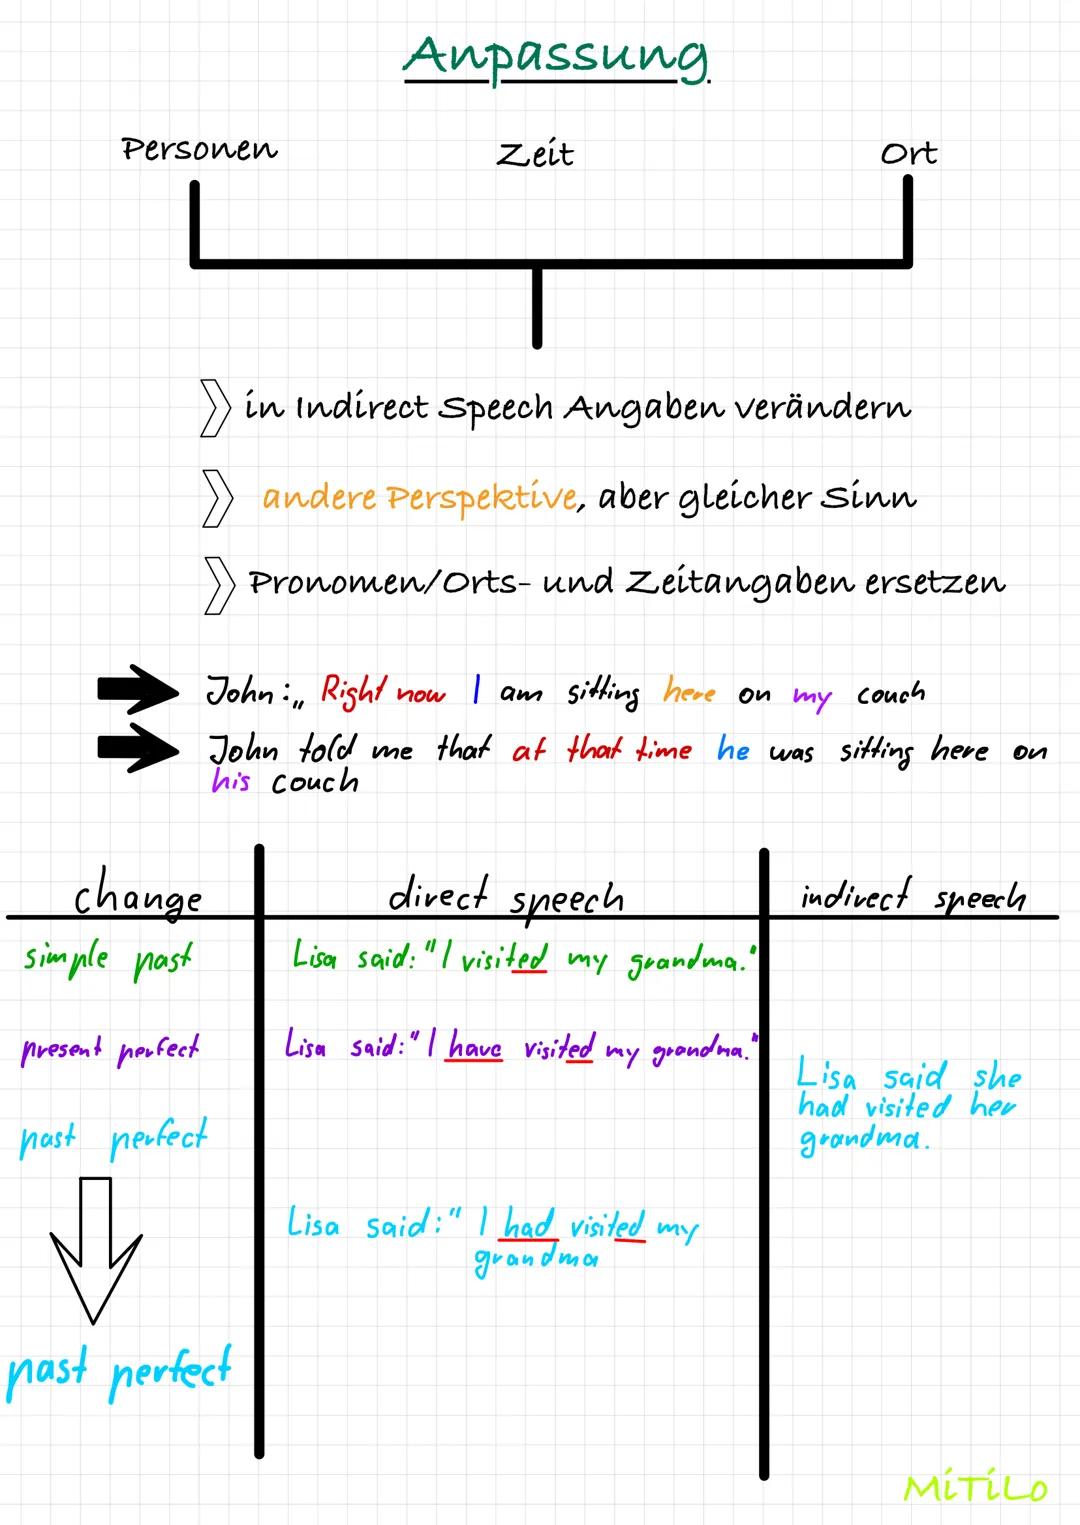 Anpassung
Personen Zeit Ort
in Indirect Speech Angaben verändern
andere Perspektive, aber gleicher Sinn
Pronomen/Orts- und Zeitangaben ersetzen
John:„ Right now I am sitting here on my couch
John told me that at that time he was sitting here on
his couch
change direct speech indirect speech
simple past Lisa said: "I visited my grandma."
present perfect Lisa said: "I have visited my grandma."
Lisa said she
had visited her
grandma.
past perfect
Lisa said: " I had visited my
grandma
past perfect
MiTiLo